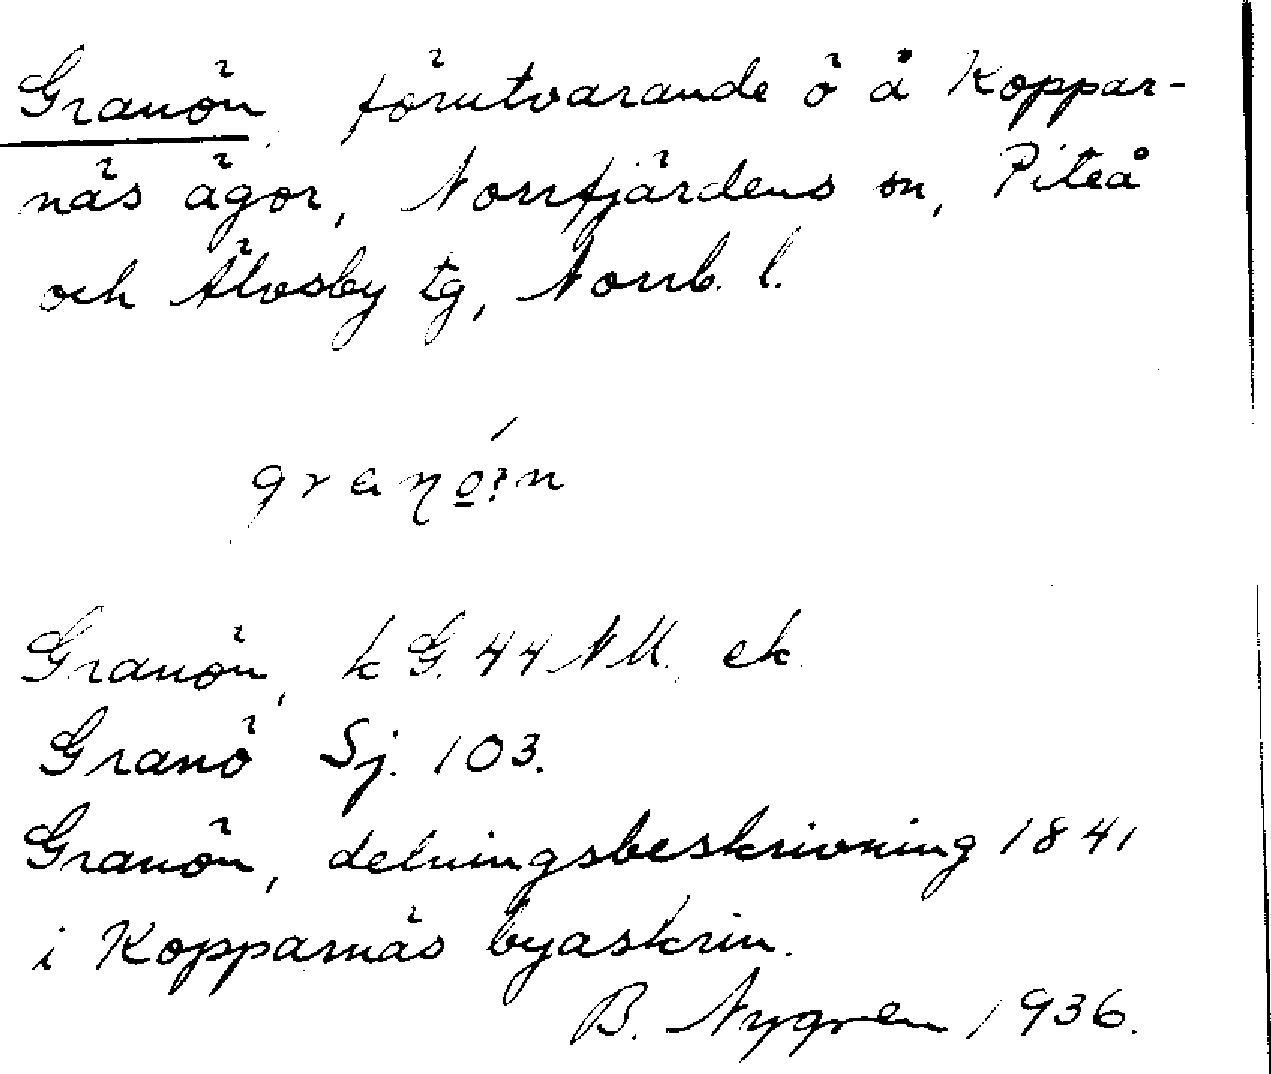 Granön, förutvarande ö å Koppar-
näs ägor, Norrfjärdens sn, Piteå
och Älvsby tg, Norrb. l.
Granön, k G. 44 NM. ek.
Granö Sj. 103.
Granön, delningsbeskrivning 1841
i Kopparnäs byaskrin.
B. Nygren 1936.